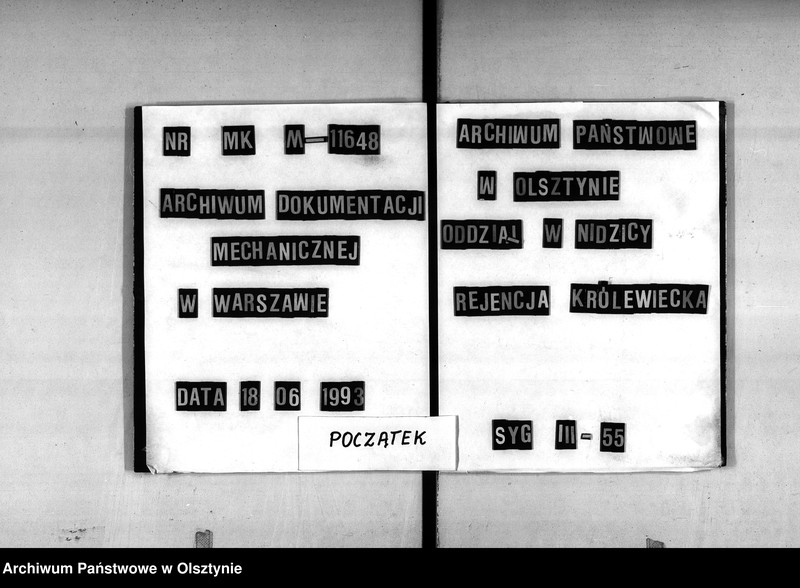 NR MK M-11648
ARCHIWUM DOKUMENTACJI
MECHANICZNEJ
W WARSZAWIE
DATA 18 06 1993
ARCHIWUM PAŃSTWOWE
W OLSZTYNIE
ODDZIAŁ W NIDZICY
REJENCJA KRÓLEWIECKA
SYG III-55
POCZĄTEK
Archiwum Państwowe w Olsztynie